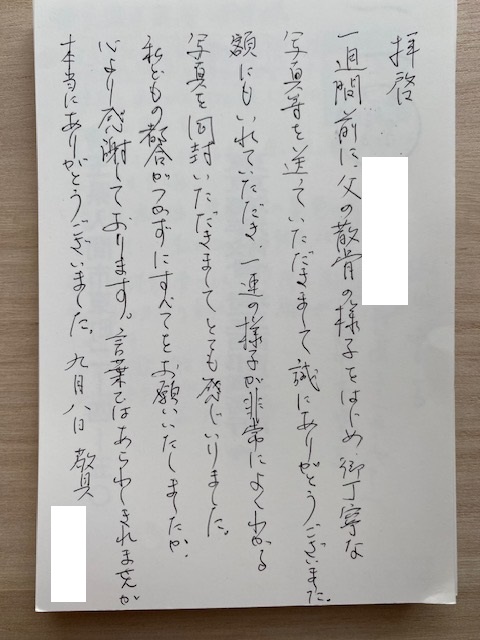 拝啓
一週間前に、父の散骨の様子をはじめ、御丁寧な
写真等を送っていただきまして、誠にありがとうございました。
額にもいれていただき、一連の様子が非常によくわかる
写真を同封いただきましてとても感じいりました。
私どもの都合がつかずにすべてをお願いいたしましたが、
心より感謝しております。言葉ではあらわしきれませんが
本当にありがとうございました。九月八日 敬具